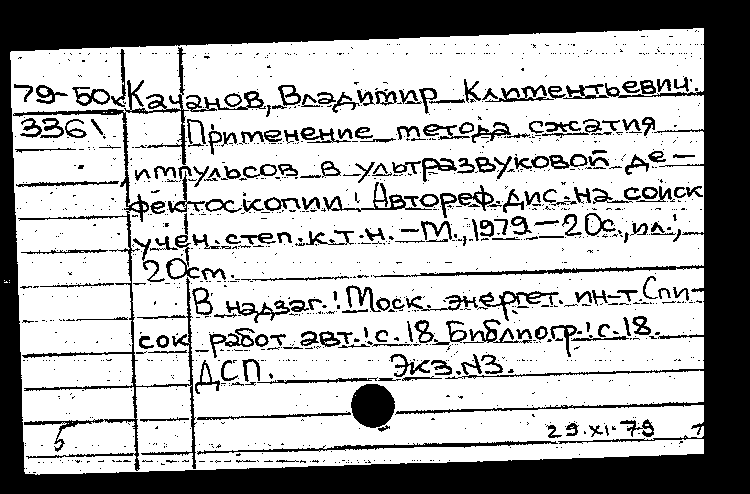 79-50к Качанов, Владимир Климентьевич.
3361 Применение метода сжатия
импульсов в ультразвуковой де-
фектоскопии: Автореф. дис. на соиск
учен. степ. к.т.н. - М., 1979 - 20с., ил.;
20 см.
В надзаг.: Моск. энергет. ин-т. Спи-
сок работ авт.: с. 18. Библиогр.: с. 18.
ДСП. Экз. N3.
5 29.XI.79